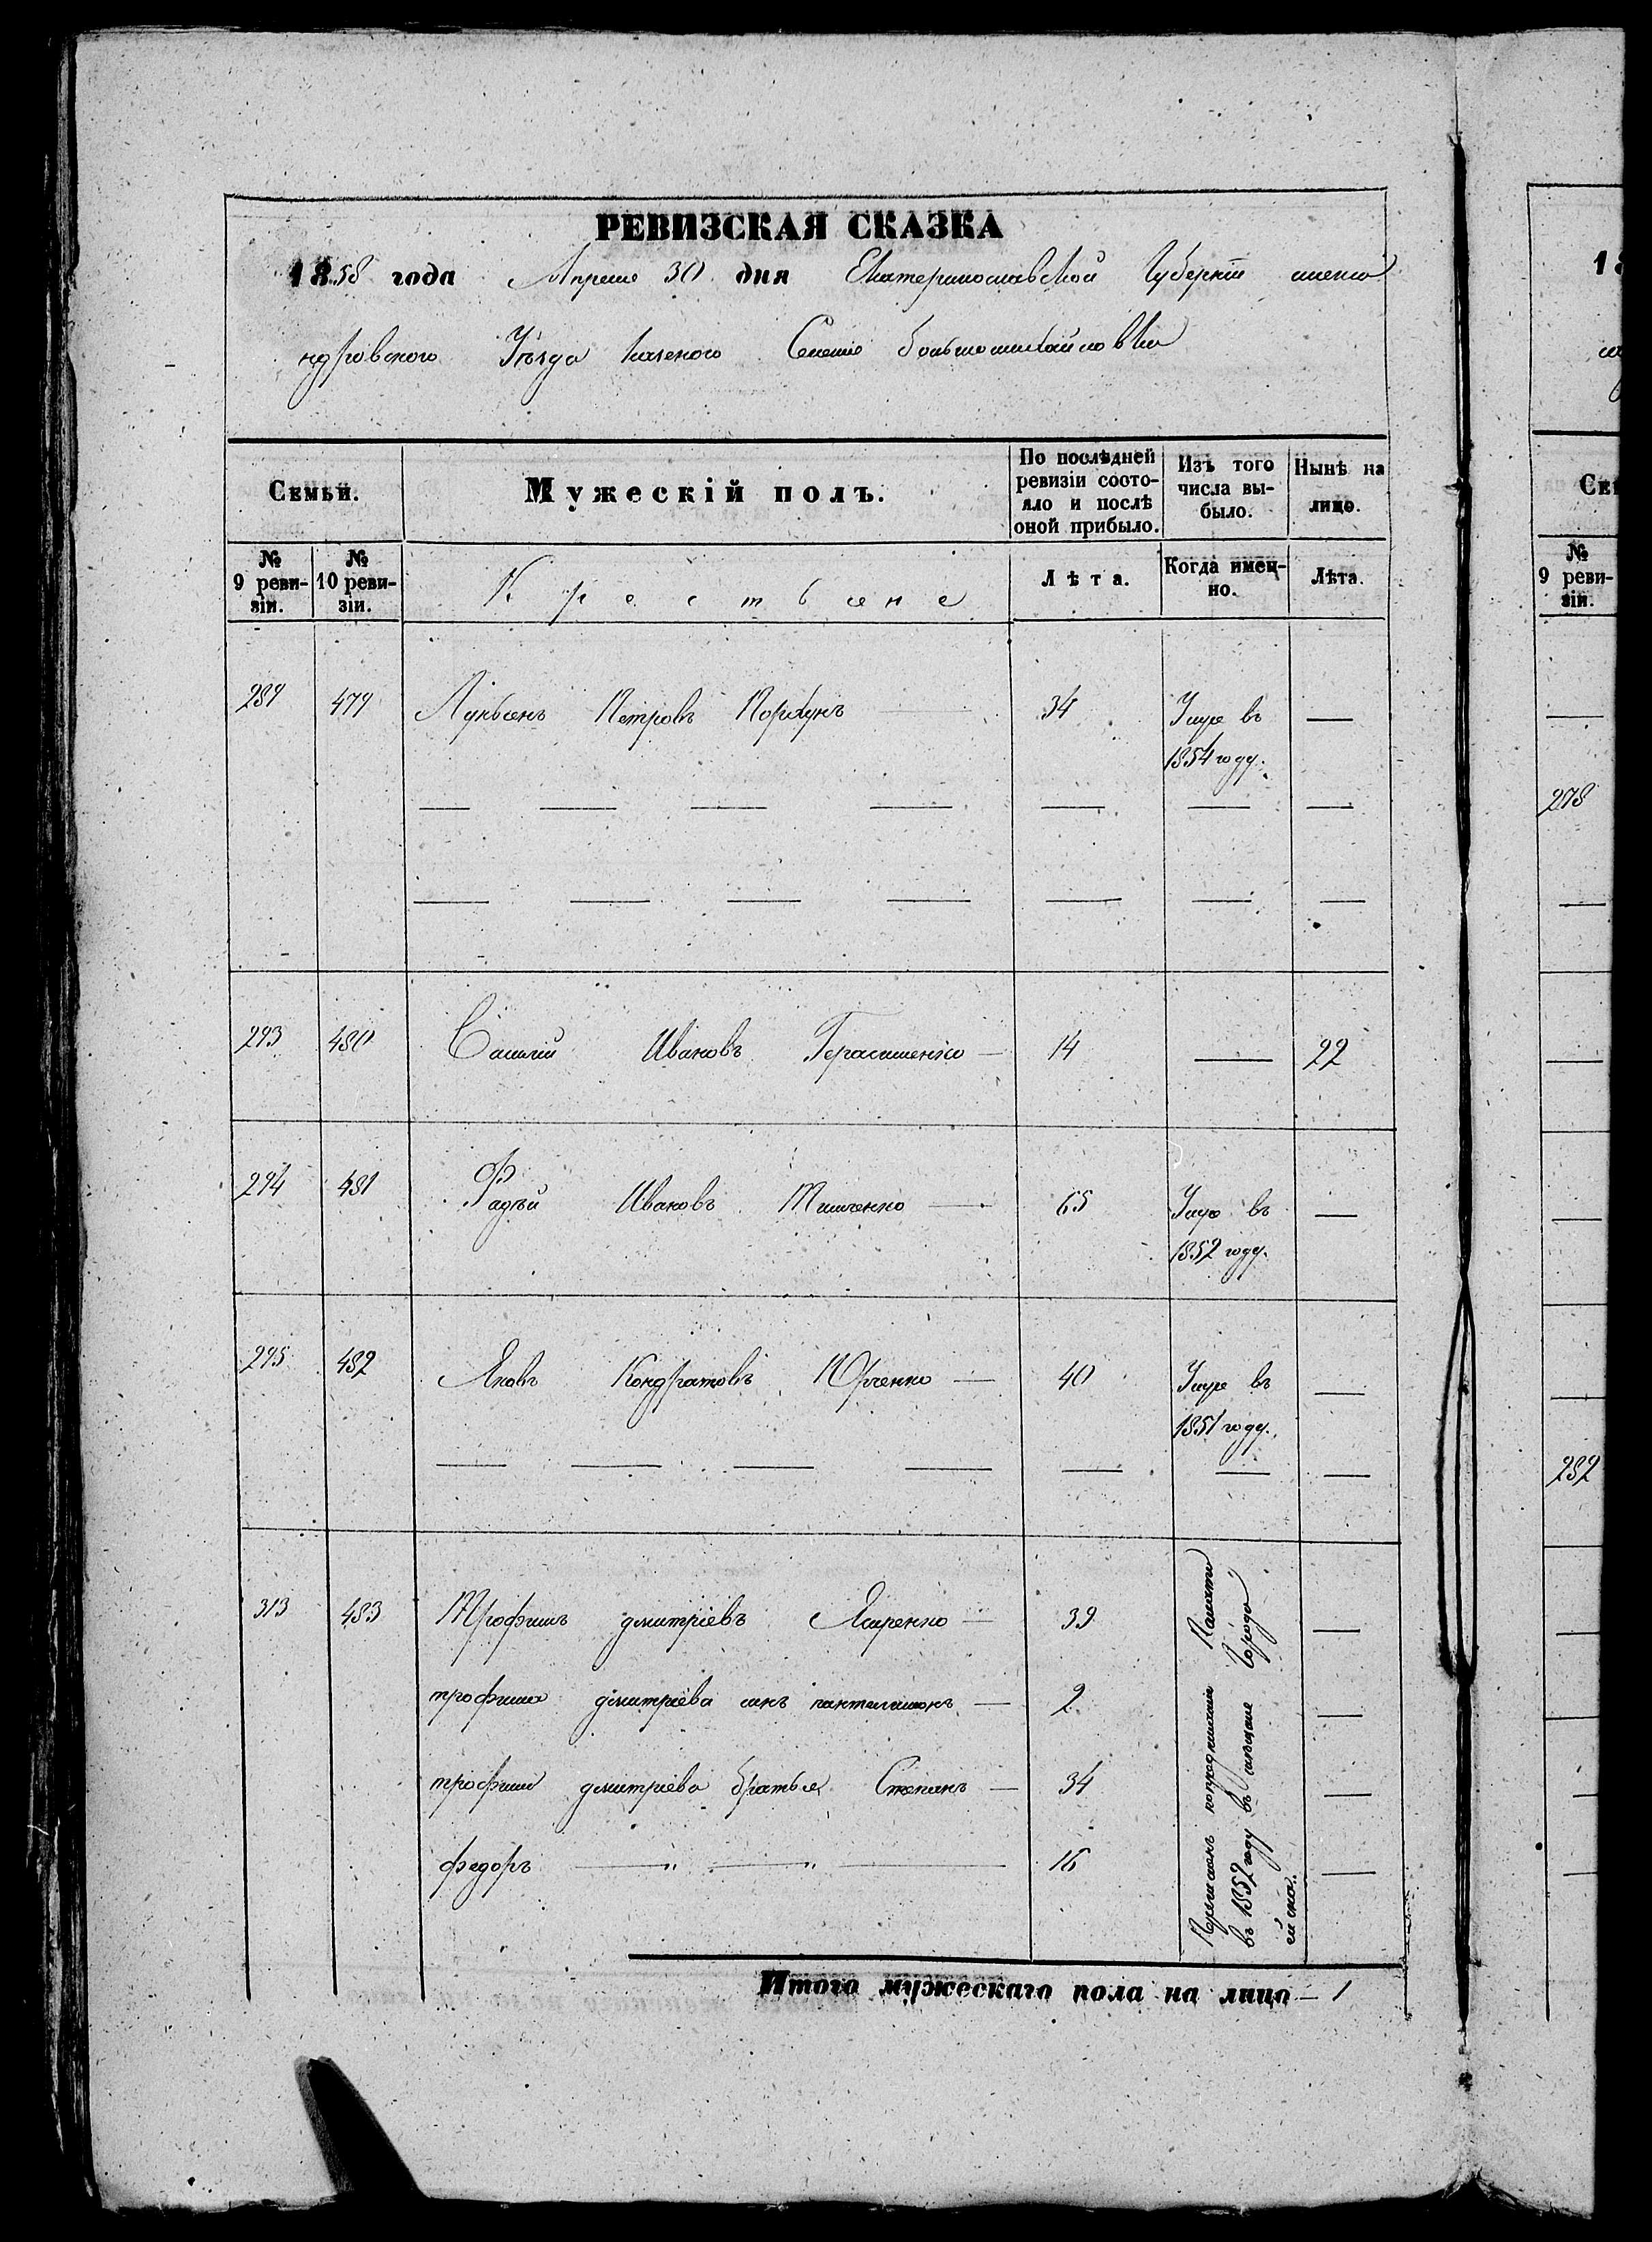 РЕВИЗСКАЯ СКАЗКА
1858 года Апреля 30 дня Екатеринославской Губерніи алекса
ндровского Уѣзда казеного Селенія большомихайловки
Семьи.
Мужескій полъ.
По послѣдней ревизіи состояло и послѣ оной прибыло.
Изъ того числа выбыло.
Нынѣ на лицо.
№ 9 ревизіи.
№ 10 ревизіи.
Крестьяне
Лѣта.
Когда именно.
Лѣта.
289 479 Лукьянъ Петровъ 34 Умре въ —
1854 году.
293 480 Василій Ивановъ Герасименко — 14 — 22
294 481 Фадѣй Ивановъ Тимченко — 65 Умре въ —
1852 году.
295 482 Яковъ Кондратовъ Юрченко — 40 Умре въ —
1851 году.
313 483 Трофимъ дмитріевъ — 39 —
трофима дмитріева сынъ пантелимонъ — 2 —
трофима дмитріева братья Степанъ — 34 —
федоръ — „ — „ — 16 —
въ 1852 году въ мещане Города
Итого мужескаго пола на лицо — 1
18
Семьи
№
9 реви-
зіи.
278
282